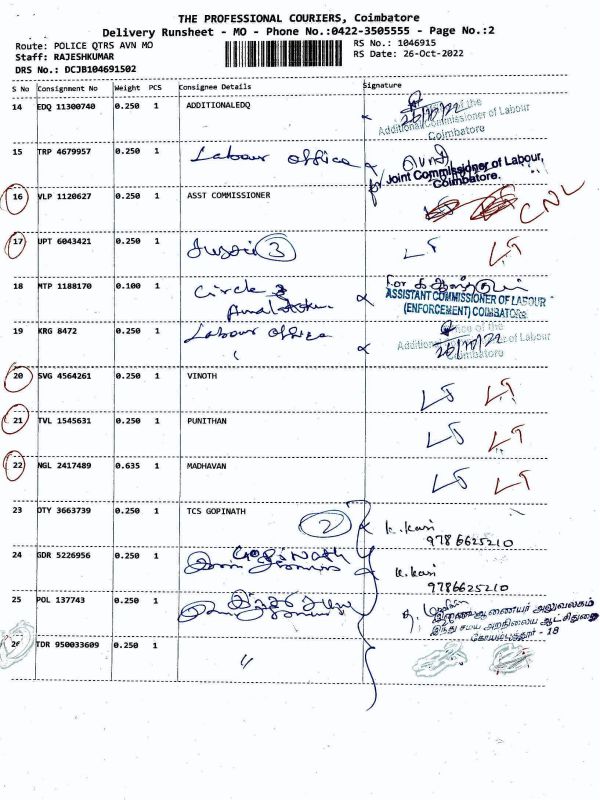 THE PROFESSIONAL COURIERS, Coimbatore
Delivery Runsheet - MO - Phone No.:0422-3505555 - Page No.:2
Route: POLICE QTRS AVN MO RS No.: 1046915
Staff: RAJESHKUMAR RS Date: 26-Oct-2022
DRS No.: DCJB104691502
S No Consignment No Weight PCS Consignee Details Signature
14 EDQ 11300740 0.250 1 ADDITIONALEDQ 26/10/22
Additional Commissioner of Labour
Coimbatore
15 TRP 4679957 0.250 1 Labour office
for Joint Commissioner of Labour,
Coimbatore.
16 VLP 1120627 0.250 1 ASST COMMISSIONER CNL
17 UPT 6043421 0.250 1 3 LT LT
18 MTP 1188170 0.100 1 Circle for
ASSISTANT COMMISSIONER OF LABOUR
(ENFORCEMENT) COIMBATORE
19 KRG 8472 0.250 1 Labour office Office of the
Additional Commissioner of Labour
26/10/22
Coimbatore
20 SVG 4564261 0.250 1 VINOTH LT LT
21 TVL 1545631 0.250 1 PUNITHAN LT LT
22 NGL 2417489 0.635 1 MADHAVAN LT LT
23 OTY 3663739 0.250 1 TCS GOPINATH 2 K. Kani
9786625210
24 GDR 5226956 0.250 1 Gopinath K. Kani
9786625210
25 POL 137743 0.250 1
இணை ஆணையர் அலுவலகம்
இந்து சமய அறநிலைய ஆட்சிதுறை
கோயம்புத்தூர் - 18
26 TDR 950033609 0.250 1 "